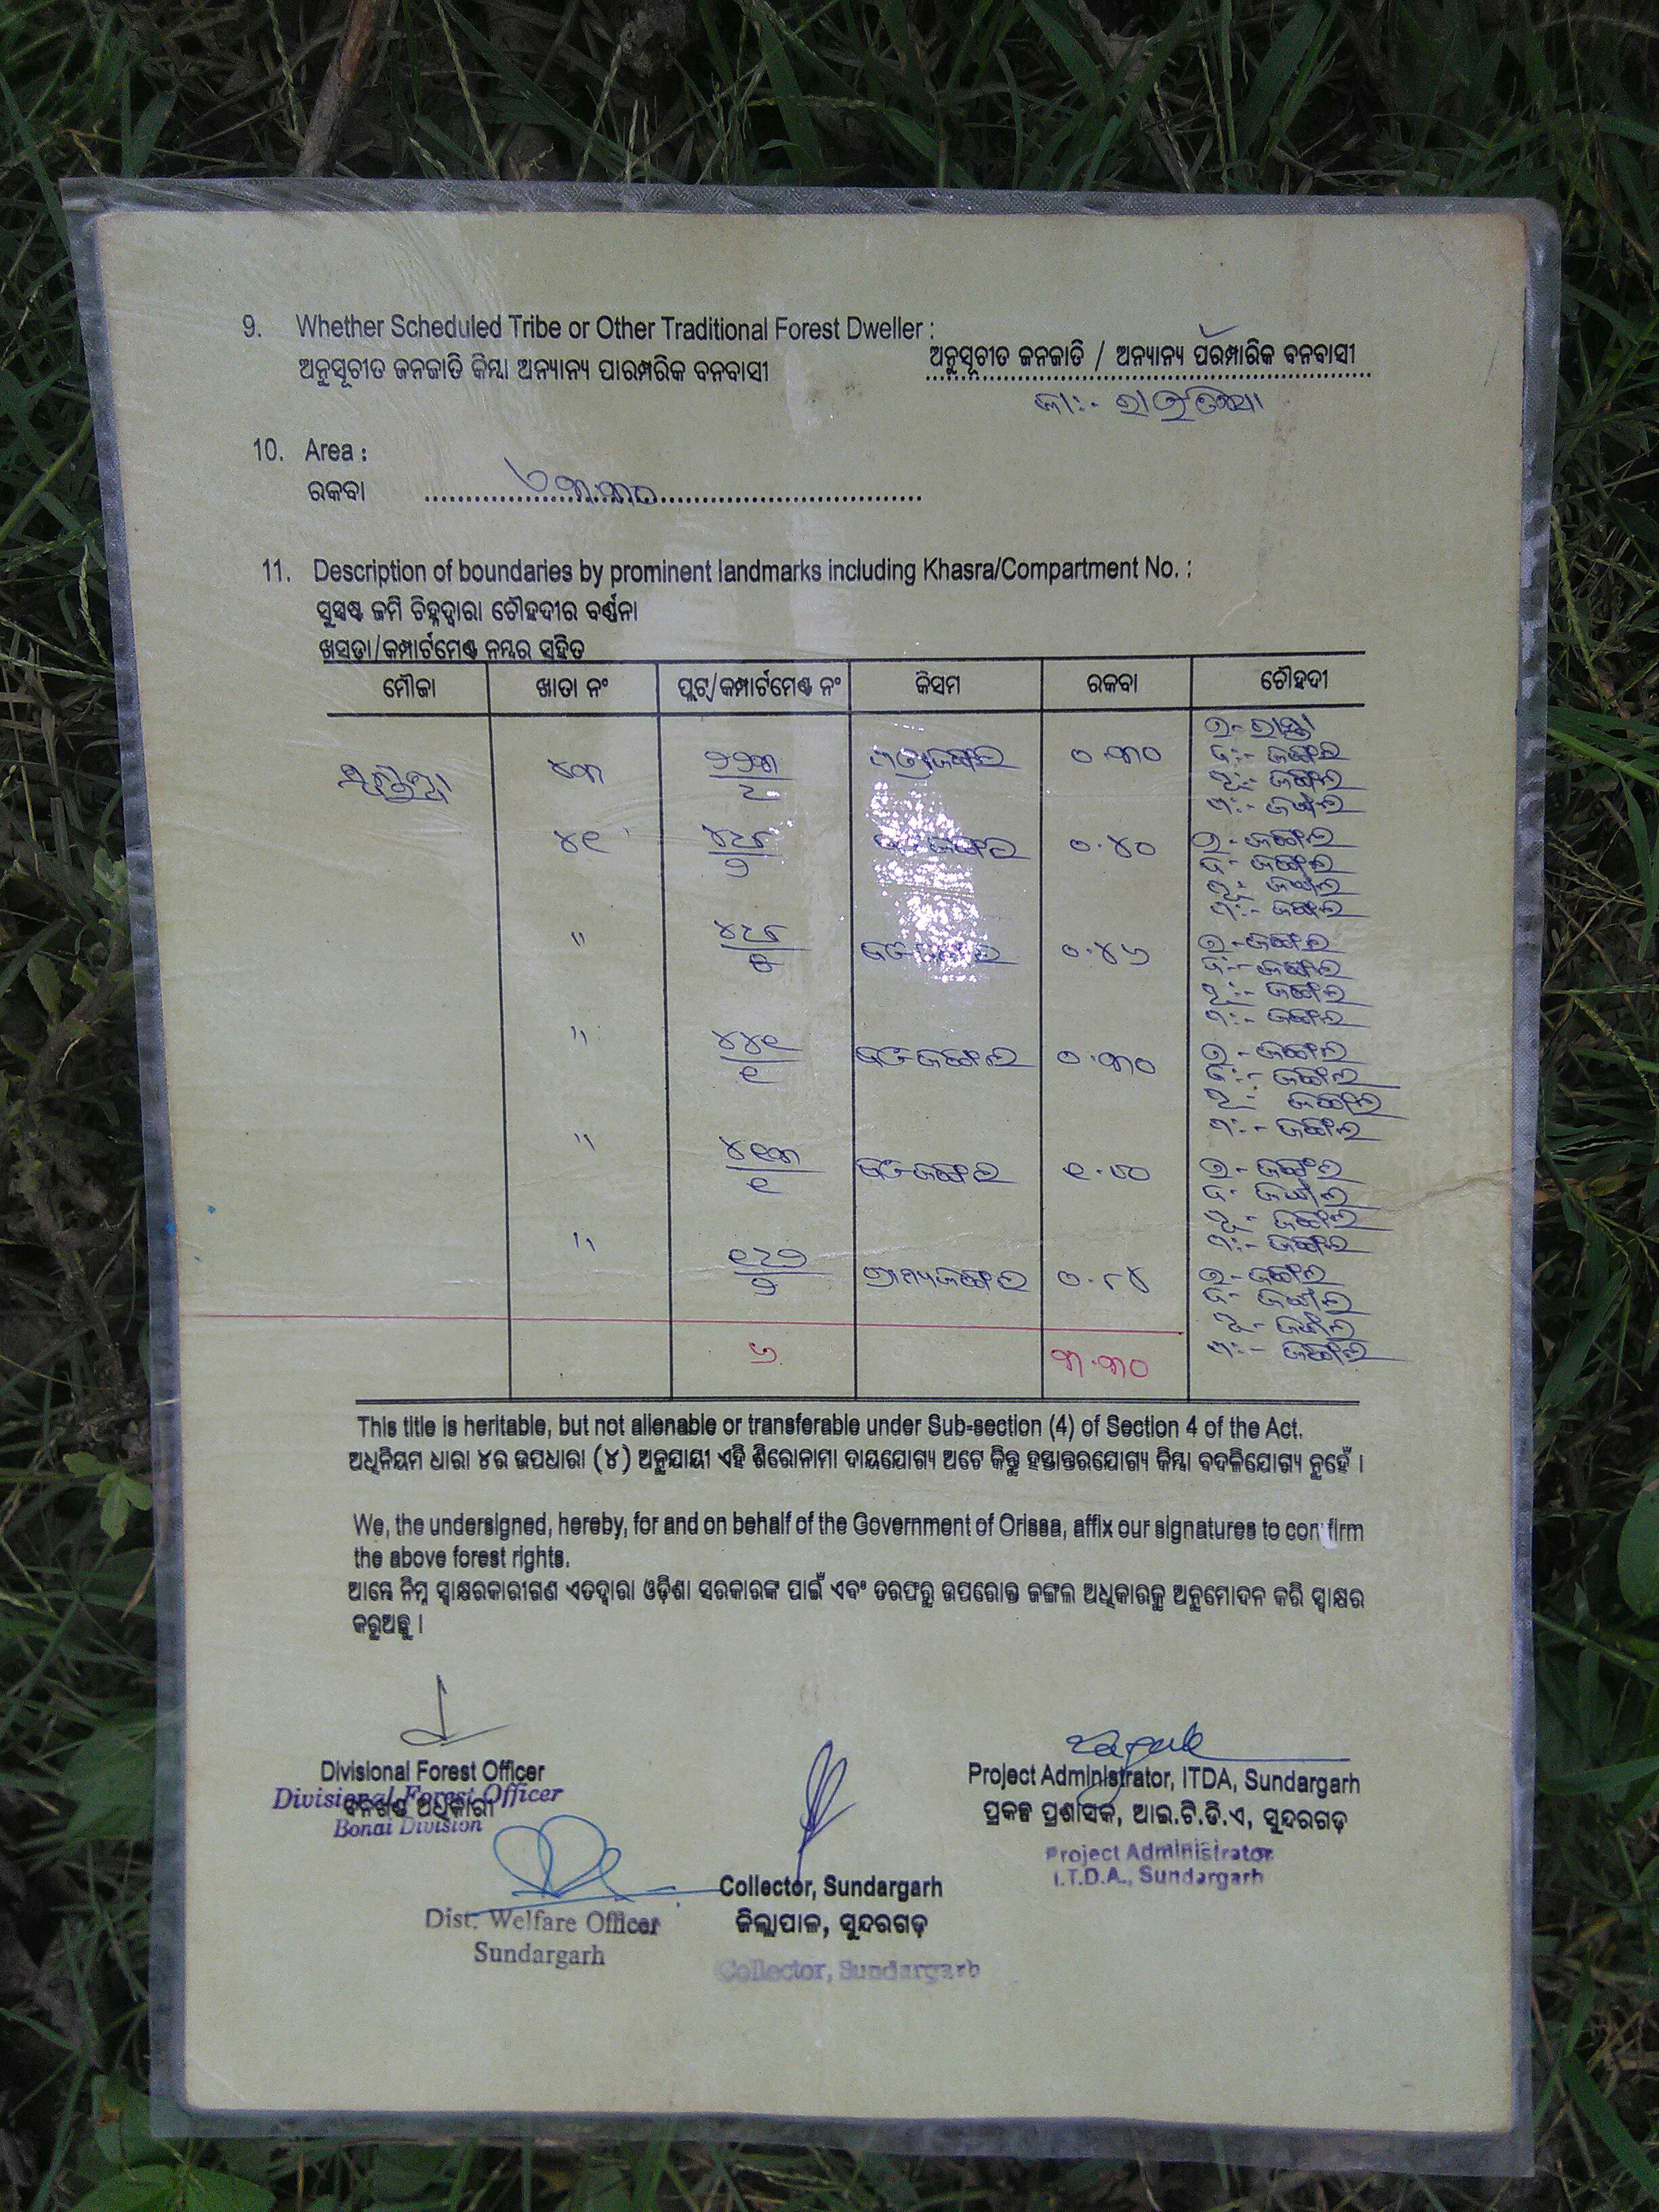 9. Whether Scheduled Tribe or Other Traditional Forest Dweller :
ଅନୁସୂଚୀତ ଜନଜାତି କିମ୍ବା ଅନ୍ୟାନ୍ୟ ପାରମ୍ପରିକ ବନବାସୀ
ଅନୁସୂଚୀତ ଜନଜାତି / ଅନ୍ୟାନ୍ୟ ପରମ୍ପାରିକ ବନବାସୀ
ଜା:-
10. Area :
ରକବା ୩.୩୦
11. Description of boundaries by prominent landmarks including Khasra/Compartment No. :
ସୁସ୍ପଷ୍ଟ ଜମି ଚିହ୍ନଦ୍ୱାରା ଚୌହଦୀର ବର୍ଣ୍ଣନା
ଖସଡା/କମ୍ପାର୍ଟମେଣ୍ଟ ନମ୍ବର ସହିତ
ମୌଜା ଖାତା ନଂ ପ୍ଲଟ୍/କମ୍ପାର୍ଟମେଣ୍ଟ ନଂ କିସମ ରକବା ଚୌହଦୀ
ଉ- ରାସ୍ତା
୦.୩୦ ଦ:- ଜଙ୍ଗଲ
ପୂ:- ଜଙ୍ଗଲ
ପ:- ଜଙ୍ଗଲ
୪୧ ୦.୪୦ ଉ- ଜଙ୍ଗଲ
ଦ- ଜଙ୍ଗଲ
ପୂ- ଜଙ୍ଗଲ
ପ:- ଜଙ୍ଗଲ
" ୦.୪୬ ଉ- ଜଙ୍ଗଲ
ଦ:- ଜଙ୍ଗଲ
ପୂ:- ଜଙ୍ଗଲ
ପ:- ଜଙ୍ଗଲ
" ୪୪୧/୧ ୦.୩୦ ଉ- ଜଙ୍ଗଲ
ଦ:- ଜଙ୍ଗଲ
ପୂ- ଜଙ୍ଗଲ
ପ:- ଜଙ୍ଗଲ
" ୪୧୩/୧ ଉ- ଜଙ୍ଗଲ
ଦ- ଜଙ୍ଗଲ
ପୂ- ଜଙ୍ଗଲ
ପ:- ଜଙ୍ଗଲ
" ଗ୍ରାମ୍ୟଜଙ୍ଗଲ ଉ- ଜଙ୍ଗଲ
ଦ- ଜଙ୍ଗଲ
ପୂ- ଜଙ୍ଗଲ
ପ:- ଜଙ୍ଗଲ
୬ ୩.୩୦
This title is heritable, but not alienable or transferable under Sub-section (4) of Section 4 of the Act.
ଅଧିନିୟମ ଧାରା ୪ର ଉପଧାରା (୪) ଅନୁଯାୟୀ ଏହି ଶିରୋନାମା ଦାୟଯୋଗ୍ୟ ଅଟେ କିନ୍ତୁ ହସ୍ତାନ୍ତରଯୋଗ୍ୟ କିମ୍ବା ବଦଳିଯୋଗ୍ୟ ନୁହେଁ ।
We, the undersigned, hereby, for and on behalf of the Government of Orissa, affix our signatures to confirm
the above forest rights.
ଆମ୍ଭେ ନିମ୍ନ ସ୍ୱାକ୍ଷରକାରୀଗଣ ଏତଦ୍ୱାରା ଓଡ଼ିଶା ସରକାରଙ୍କ ପାଇଁ ଏବଂ ତରଫରୁ ଉପରୋକ୍ତ ଜଙ୍ଗଲ ଅଧିକାରକୁ ଅନୁମୋଦନ କରି ସ୍ୱାକ୍ଷର
କରୁଅଛୁ ।
Divisional Forest Officer
Divisional Forest Officer
ବନଖଣ୍ଡ ଅଧିକାରୀ
Bonai Division
Project Administrator, ITDA, Sundargarh
ପ୍ରକଳ୍ପ ପ୍ରଶାସକ, ଆଇ.ଟି.ଡି.ଏ, ସୁନ୍ଦରଗଡ଼
Project Administrator
I.T.D.A., Sundargarh
Collector, Sundargarh
ଜିଲ୍ଲାପାଳ, ସୁନ୍ଦରଗଡ଼
Collector, Sundargarh
Dist. Welfare Officer
Sundargarh